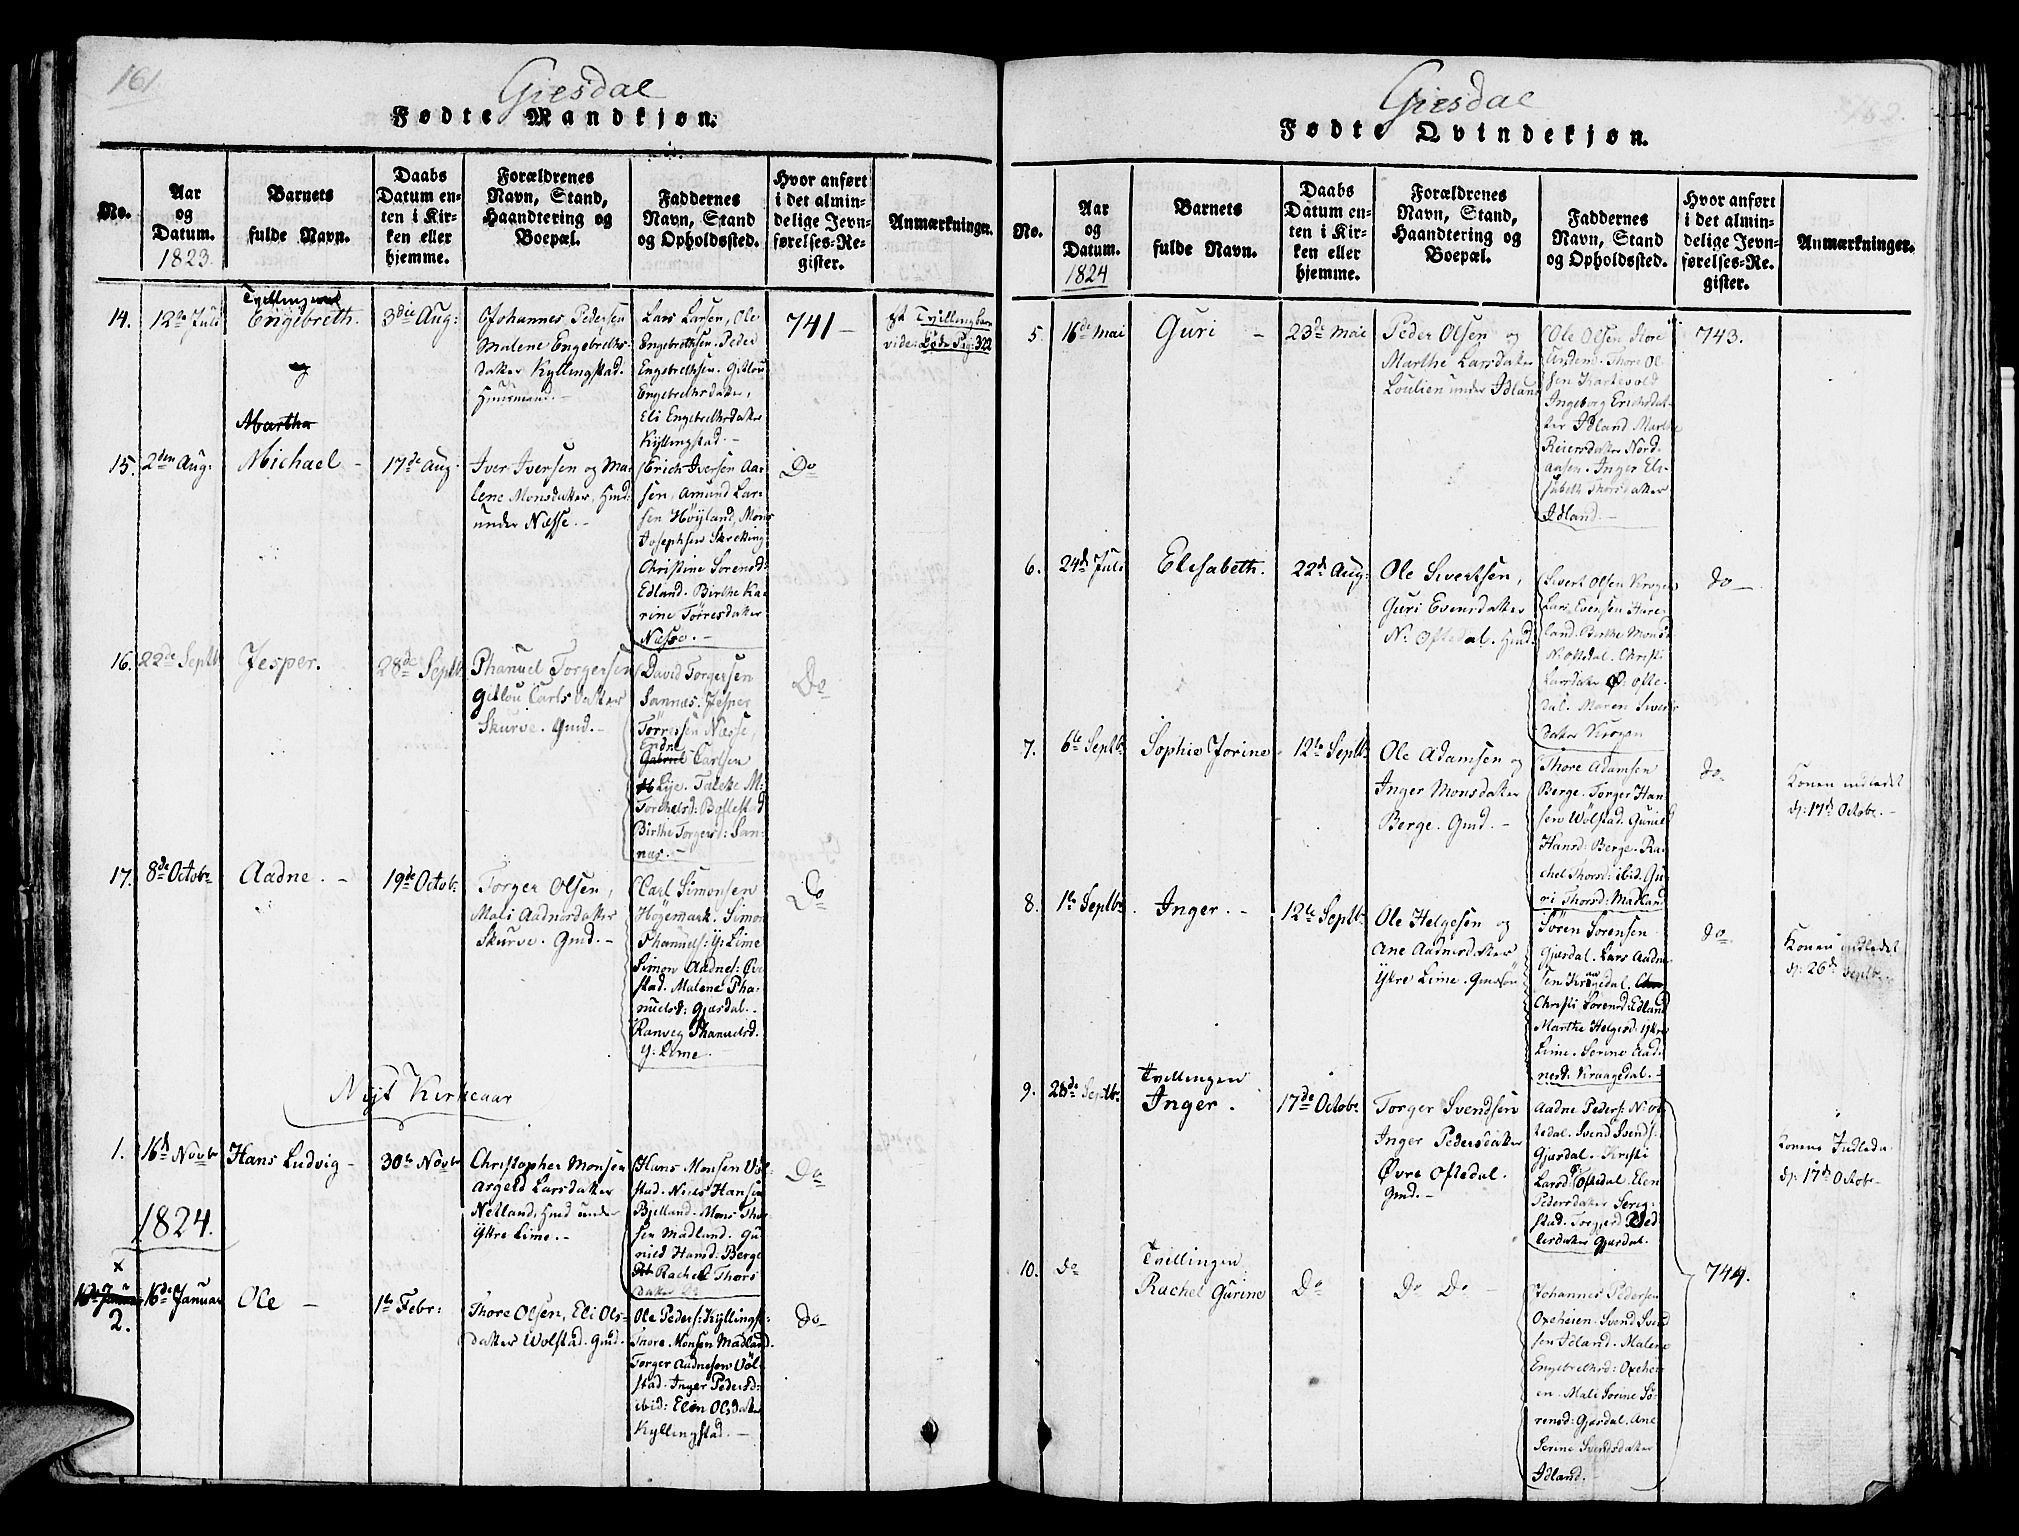 161
Giesdal
Fødte Mandkjøn.
No.
Aar
og
Datum.
1823.
Barnets
fulde Navn.
Daabs
Datum en-
ten i Kir-
ken eller
hjemme.
Forældrenes
Navn, Stand,
Haandtering og
Boepæl.
Faddernes
Navn, Stand
og Opholdssted.
Hvor anført
i det almin-
delige Jevn-
førelses-Re-
gister.
Anmærkninger.
14.
12te Juli
Tvillingerne
Engebreth.
og
Martha
3die Aug:
Johannes Pedersen
Malene Engebreths-
datter Kyllingstad.
Huusmand.-
Lars Larsen, Ole
Engebrethsen. Peder
Engebrethsen. Gitlou
Engebrethsdatter,
Eli Engebrethsdatter
Kyllingstad.-
741-
et Tvillingbarn
vide: Døde Pag: 322
15.
2den Aug:
Michael -
17de Aug.
Iver Iversen og Ma-
lene Monsdatter, Hmd:
under Næsse.-
Erich Iversen Aar-
sen, Amund Lar-
sen Høyland, Mons
Josephsen Skretting
Christine Sørensd:
Edland. Birthe Ka-
rine Tørresdatter
Næsse.-
Do
16.
22de Septb
Jesper.
28de Septb
Phanuel Torgersen
Gitlou Carlsdatter
Skurve. Gmd.-
David Torgersen
Sannæs. Jesper
Tørressen Næsse,
Endne
Gabriel Carlsen
Lye. Talette M:
Torchelsd: Bollestad
Birthe Torgersd: San-
næs.-
Do
17.
8de Octobr
Aadne. -
19de Octobr
Torger Olsen,
Mali Aadnesdatter
Skurve. Gmd.-
Carl Simonsen
Høyemark. Simon
Phanuels: Y: Lime
Simon Aadnes: Øv-
stad. Malene Pha-
nuelsd: Gjæsdal.-
Ranveg Phanuelsd.
Y: Lime.
Do
Nyt Kirkeaar
1.
16d Novb
Hans Ludvig -
30te Novb
Christopher Monsen
Argeld Larsdatter
Netland, Hmd under
Ytre Lime.-
Hans Monsen Vøl-
stad. Niels Hansen
Bjelland. Mons Thor-
sen Madland. Gu-
nild Hansd: Berge
Rachel Thors
datter Do
Do
1824.
x
16de Januar
2.
16de Januar
Ole -
1te Febr:
Thore Olsen, Eli Ols-
datter Wolstad. Gmd.
Ole Peders: Kyllingst:
Thore Monsen Madland.
Torger Aadnesen Vøl-
stad. Inger Pedersd:
ibid: Elen Olsdatter
Kyllingstad.-
do
162.
Giesdal
Fødte Qvindekjøn.
No.
Aar
og
Datum.
1824
Barnets
fulde Navn.
Daabs
Datum en-
ten i Kir-
ken eller
hjemme.
Forældrenes
Navn, Stand,
Haandtering og
Boepæl.
Faddernes
Navn, Stand
og Opholdssted.
Hvor anført
i det almin-
delige Jevn-
førelses-Re-
gister.
Anmærkninger.
5.
16de Mai
Guri -
23de Mai
Peder Olsen og
Marthe Larsdatter
Loulien under Idland
Ole Olsen Store
Thore Ol-
sen Kartevold
Ingeborg Erichsdat-
ter Idland. Marthe
Reiersdatter Nord-
aasen. Inger Eli-
sabeth Thorsdatter
Idland.-
743.
6.
24d Juli
Elisabeth.
22d Aug:
Ole Sivertsen,
Guri Evensdatter
N: Oftedal. Hmd:
Sivert Olsen Krogen
Lars Evensen Have-
land. Birthe Monsd:
N: Oftedal. Christi
Larsdatter Ø: Ofte-
dal. Maren Siverts
datter Krogen
do-
7.
6te Septbr
Sophie Jorine
12te Septbr
Ole Adamsen og
Inger Monsdatter
Berge. Gmd.-
Thore Adamsen
Berge. Torger Han-
sen Wølstad. Gunild
Hansd: Berge. Ra-
chel Thorsd: ibid. Gu-
ri Thorsd: Madland
do-
Konen indledet
d: 17d Octobr.-
8.
1te Septbr.
Inger.-
12te Septbr
Ole Helgesen og
Ane Aadnesdatter
Ytre Lime. Gmd
Søren Sørensen
Gjæsdal. Lars Aadne-
sen Kragedal.
Christi Sørensd: Edland
Marthe Helgesd: Ytre
Lime. Serine Aad-
nesd: Kraagedal.-
do-
Konen indledet
d: 26d Septbr.
9.
28de Septbr.
Tvillingen
Inger.
17de Octobr
Torger Svendsen
Inger Pedersdatter
Øvre Oftedal.
Gmd.-
Aadne Peders: N: Of-
tedal. Svend Svends:
Gjæsdal. Kristi
Larsd Oftedal. Elen
Pedersdatter Serig-
stad. Torgerd
lersdatter Gjæsdal.
Konens Indleda
d: 17d Octobr-
10.
do
Tvillingen
Rachel Gurine
Do
Do Do -
Johannes Pedersen
Oxeheien. Svend Svend
sen Idland. Malene
Engebrethsd: Oxehei-
en. Mali Serine Sø-
rensd: Gjæsdal. Ane
Serine Svendsdatter
Idland.-
744.